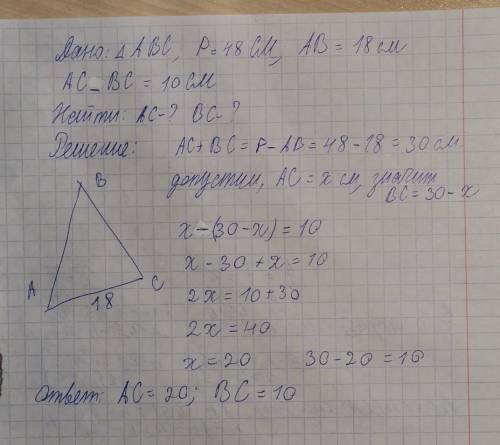 Дано: △ABC, P=48 СМ, AB=18 см
AC-BC=10СМ
Найти: AC-? BC-?
Решение: AC+BC=P-AB=48-18=30 см
допустим, AC=x см, значит
BC=30-x
B
A
C
18
x-(30-x)=10
x-30+x=10
2x=10+30
2x=40
x=20 30-20=10
Ответ: AC=20; BC=10